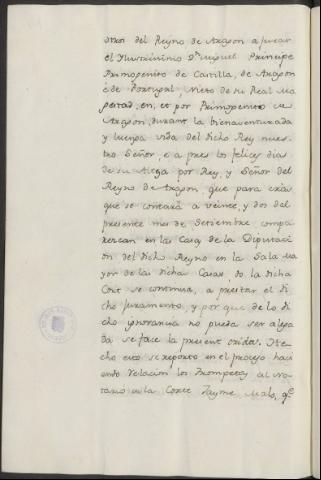 otros del Reyno de Aragon a jurar
el Ilustrisimo Dn. Miguel Principe
Primogenito de Castilla, de Aragon
e de Portugal Nieto de su Real Ma
gestad, en, et por Primogenito de
Aragon, durant la bienaventurada
y luenga vida del dicho Rey nues
tro Señor, e a pres los felices dias
de su Alteza por Rey, y Señor del
Reyno de Aragon, que para cras
que se contará a veinte, y dos del
presente mes de Setiembre compa
rezcan en las Casas de la Diputaci
on del dicho Reyno en la Sala Ma
yor de las dichas Casas do la dicha
Cort se continua, a prestar el di
cho juramento, y por que de lo di
cho ignorancia no pueda ser alega
da se face la present crida. He
cho esto se reportó en el proceso haci
endo relacion los Trompetas al No
tario de la Corte Jayme Malo, qe.